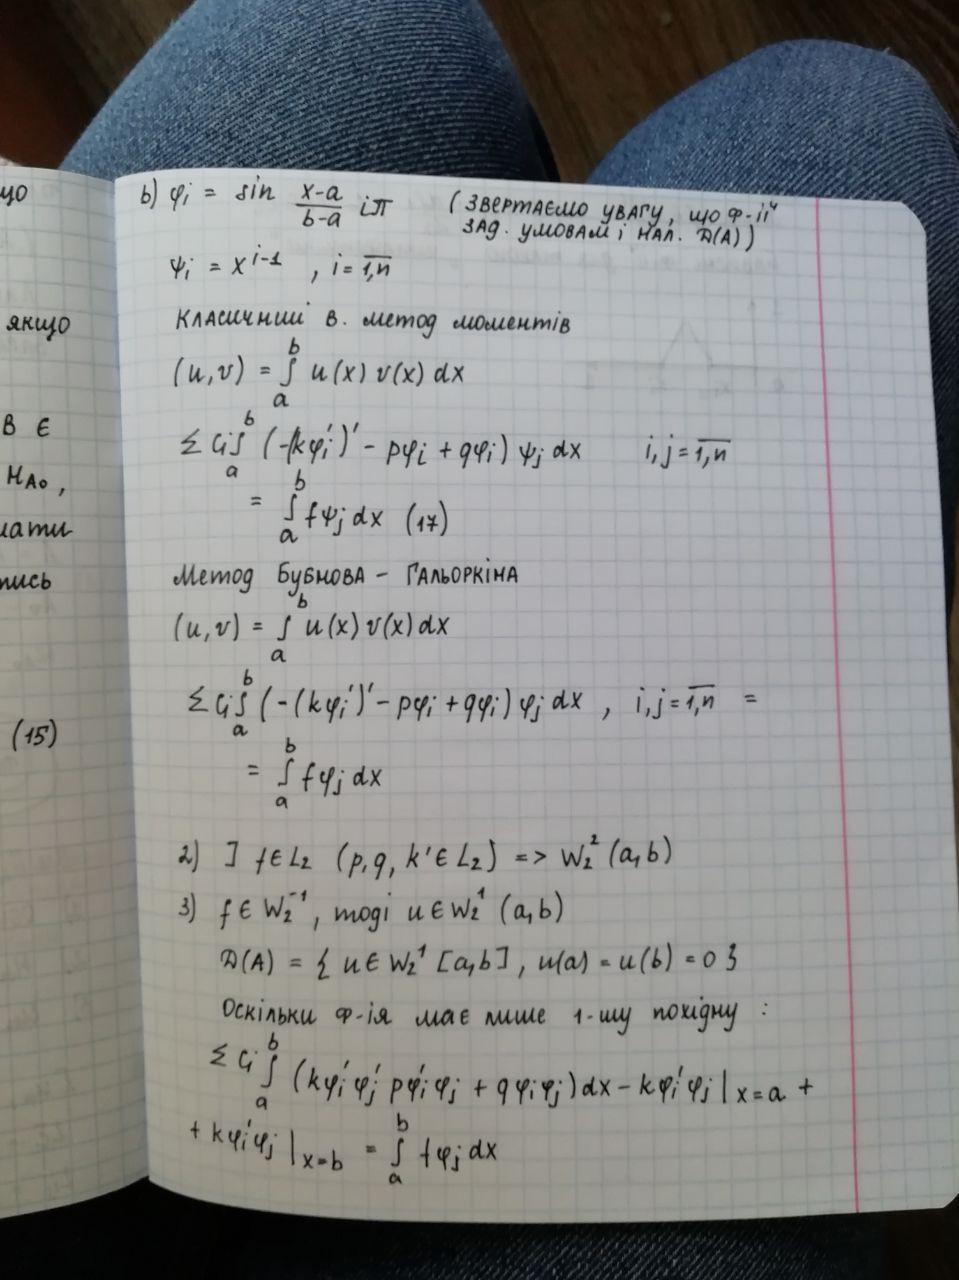 що
якщо
В Є
H_{A_0},
мати
тись
(15)
b) φ_i = sin \frac{x-a}{b-a} iπ (ЗВЕРТАЄМО УВАГУ, ЩО Ф-ІЇ
ЗАД. УМОВАМ і НАЛ. D(A))
ψ_i = x^{i-1}, i = \overline{1,n}
Класичний в. метод моментів
(u,v) = ∫_a^b u(x) v(x) dx
Σ C_i ∫_a^b (-(kφ_i')' - pφ_i + qφ_i) ψ_j dx i,j = \overline{1,n}
= ∫_a^b fψ_j dx (17)
Метод БУБНОВА - ГАЛЬОРКІНА
(u,v) = ∫_a^b u(x) v(x) dx
Σ C_i ∫_a^b (-(kφ_i')' - pφ_i + qφ_i) φ_j dx, i,j = \overline{1,n} =
= ∫_a^b fφ_j dx
2) ] f ∈ L_2 (p, q, k' ∈ L_2) => W_2^2 (a,b)
3) f ∈ W_2^{-1}, тоді u ∈ W_2^1 (a,b)
D(A) = { u ∈ W_2^1 [a,b], u(a) = u(b) = 0 }
Оскільки ф-ія має лише 1-шу похідну :
Σ C_i ∫_a^b (kφ_i'φ_j' pφ_i'φ_j + qφ_iφ_j) dx - kφ_i'φ_j |_{x=a} +
+ kφ_i'φ_j |_{x=b} = ∫_a^b fφ_j dx